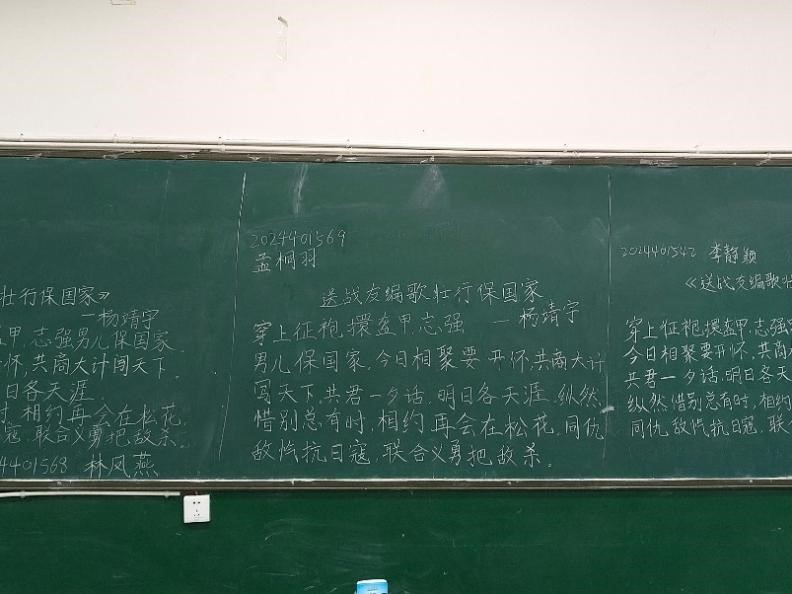 壮行保国家》
—杨靖宇
盔甲,志强男儿保国家.
怀,共商大计闯天下.
日各天涯.
时,相约再会在松花.
寇,联合义勇把敌杀.
4401568 林凤燕
2024401569
孟桐羽
送战友编歌壮行保国家
穿上征袍擐盔甲,志强 —杨靖宇
男儿保国家,今日相聚要开怀,共商大计
闯天下,共君一夕话,明日各天涯.纵然
惜别总有时,相约再会在松花,同仇
敌忾抗日寇,联合义勇把敌杀.
2024401542 李静颖
《送战友编歌壮
穿上征袍擐盔甲,志强
今日相聚要开怀,共商
共君一夕话,明日各天
纵然惜别总有时,相约
同仇敌忾抗日寇,联